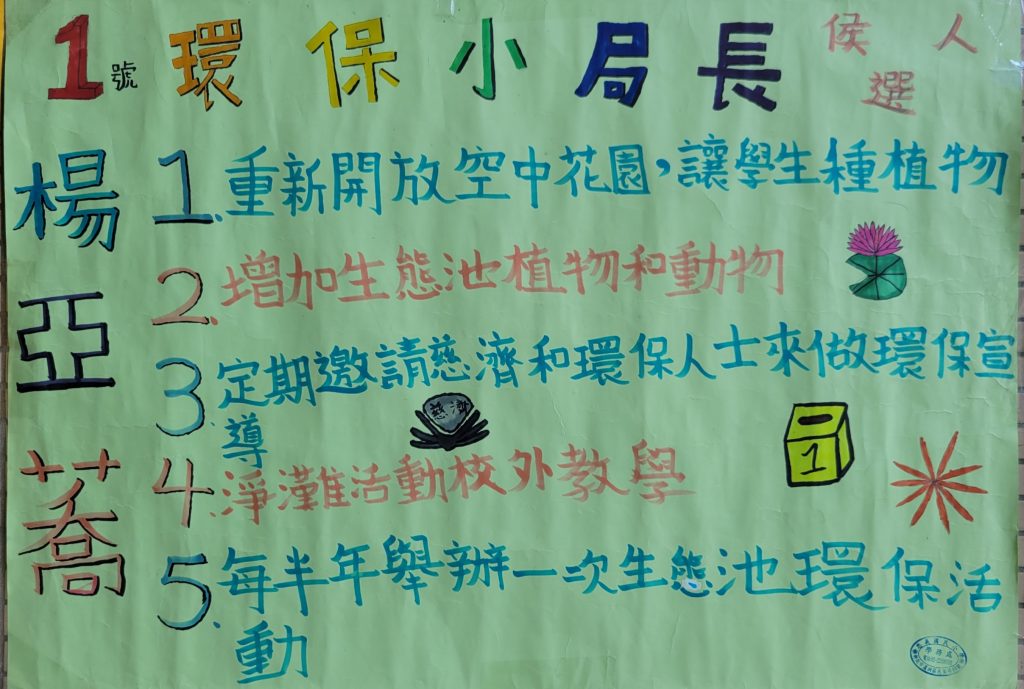 1號 環保小局長 侯選人
楊亞蕎
1. 重新開放空中花園，讓學生種植物
2. 增加生態池植物和動物
3. 定期邀請慈濟和環保人士來做環保宣
導
慈濟
4. 淨灘活動校外教學
1
5. 每半年舉辦一次生態池環保活
動
學務處